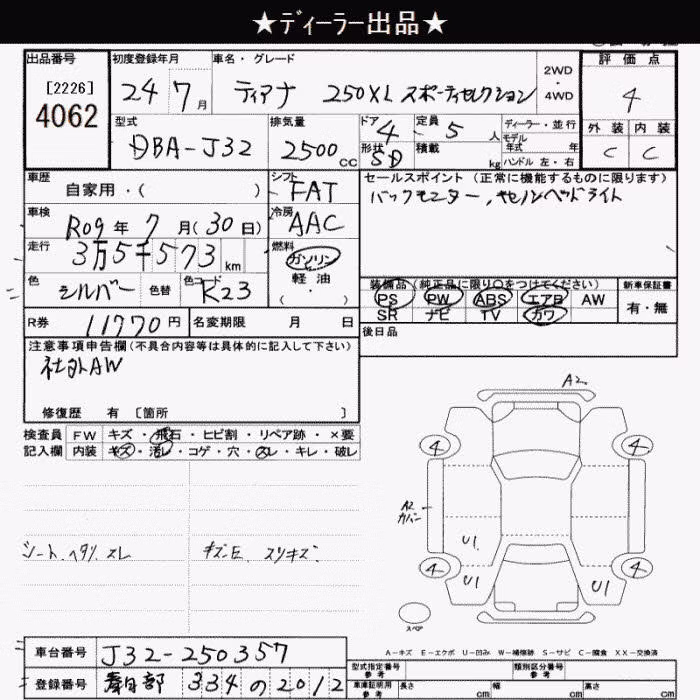 ★ディーラー出品★
出品番号
[2226]
4062
初度登録年月
24 7月
車名・グレード
ティアナ 250XL スポーティセレクション
2WD
・
4WD
評価点
4
外装 内装
C C
型式
DBA-J32
排気量
2500cc
ドア 4
形状 SD
定員 5人
積載 kg
ディーラー・並行
モデル年式 年
ハンドル 左・右
車歴
自家用・( )
シフト
FAT
セールスポイント (正常に機能するものに限ります)
バックモニター、キセノンヘッドライト
車検
R09年7月(30日)
冷房
AAC
走行
3万5千573km
燃料
ガソリン
軽油
( ・ )
色
シルバー
色替
色コード
K23
装備品 (純正品に限り○をつけてください)
PS PW ABS エアB AW
SR ナビ TV カワ
新車保証書
有・無
R券
11770円
名変期限 月 日
後日品
注意事項申告欄(不具合内容等は具体的に記入して下さい)
社外AW
修復歴 有 [箇所 ]
検査員 FW キズ・飛石・ヒビ割・リペア跡・×要
記入欄 内装 キズ・汚レ・コゲ・穴・スレ・キレ・破レ
シート、ヘタリ、スレ
キズE、スリキズ
A2
4 4
A2
カバー
U1
4 4
U1 U1
スペア
A-キズ E-エクボ U-凹み W-補修跡 S-サビ C-腐食 XX-交換済
車台番号
J32-250357
登録番号
春日部 334の2012
型式指定番号
参考
類別区分番号
参考
車庫証明用
参考
長さ cm 幅 cm 高さ cm